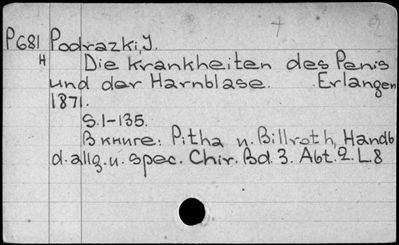 P681 Podrazki, J.
H Die Krankheiten des Penis
und der Harnblase. Erlangen
1871.
S. 1-135.
В книге: Pitha u. Billroth, Handb
d. allg. u. spec. Chir. Bd. 3. Abt. 2. L8